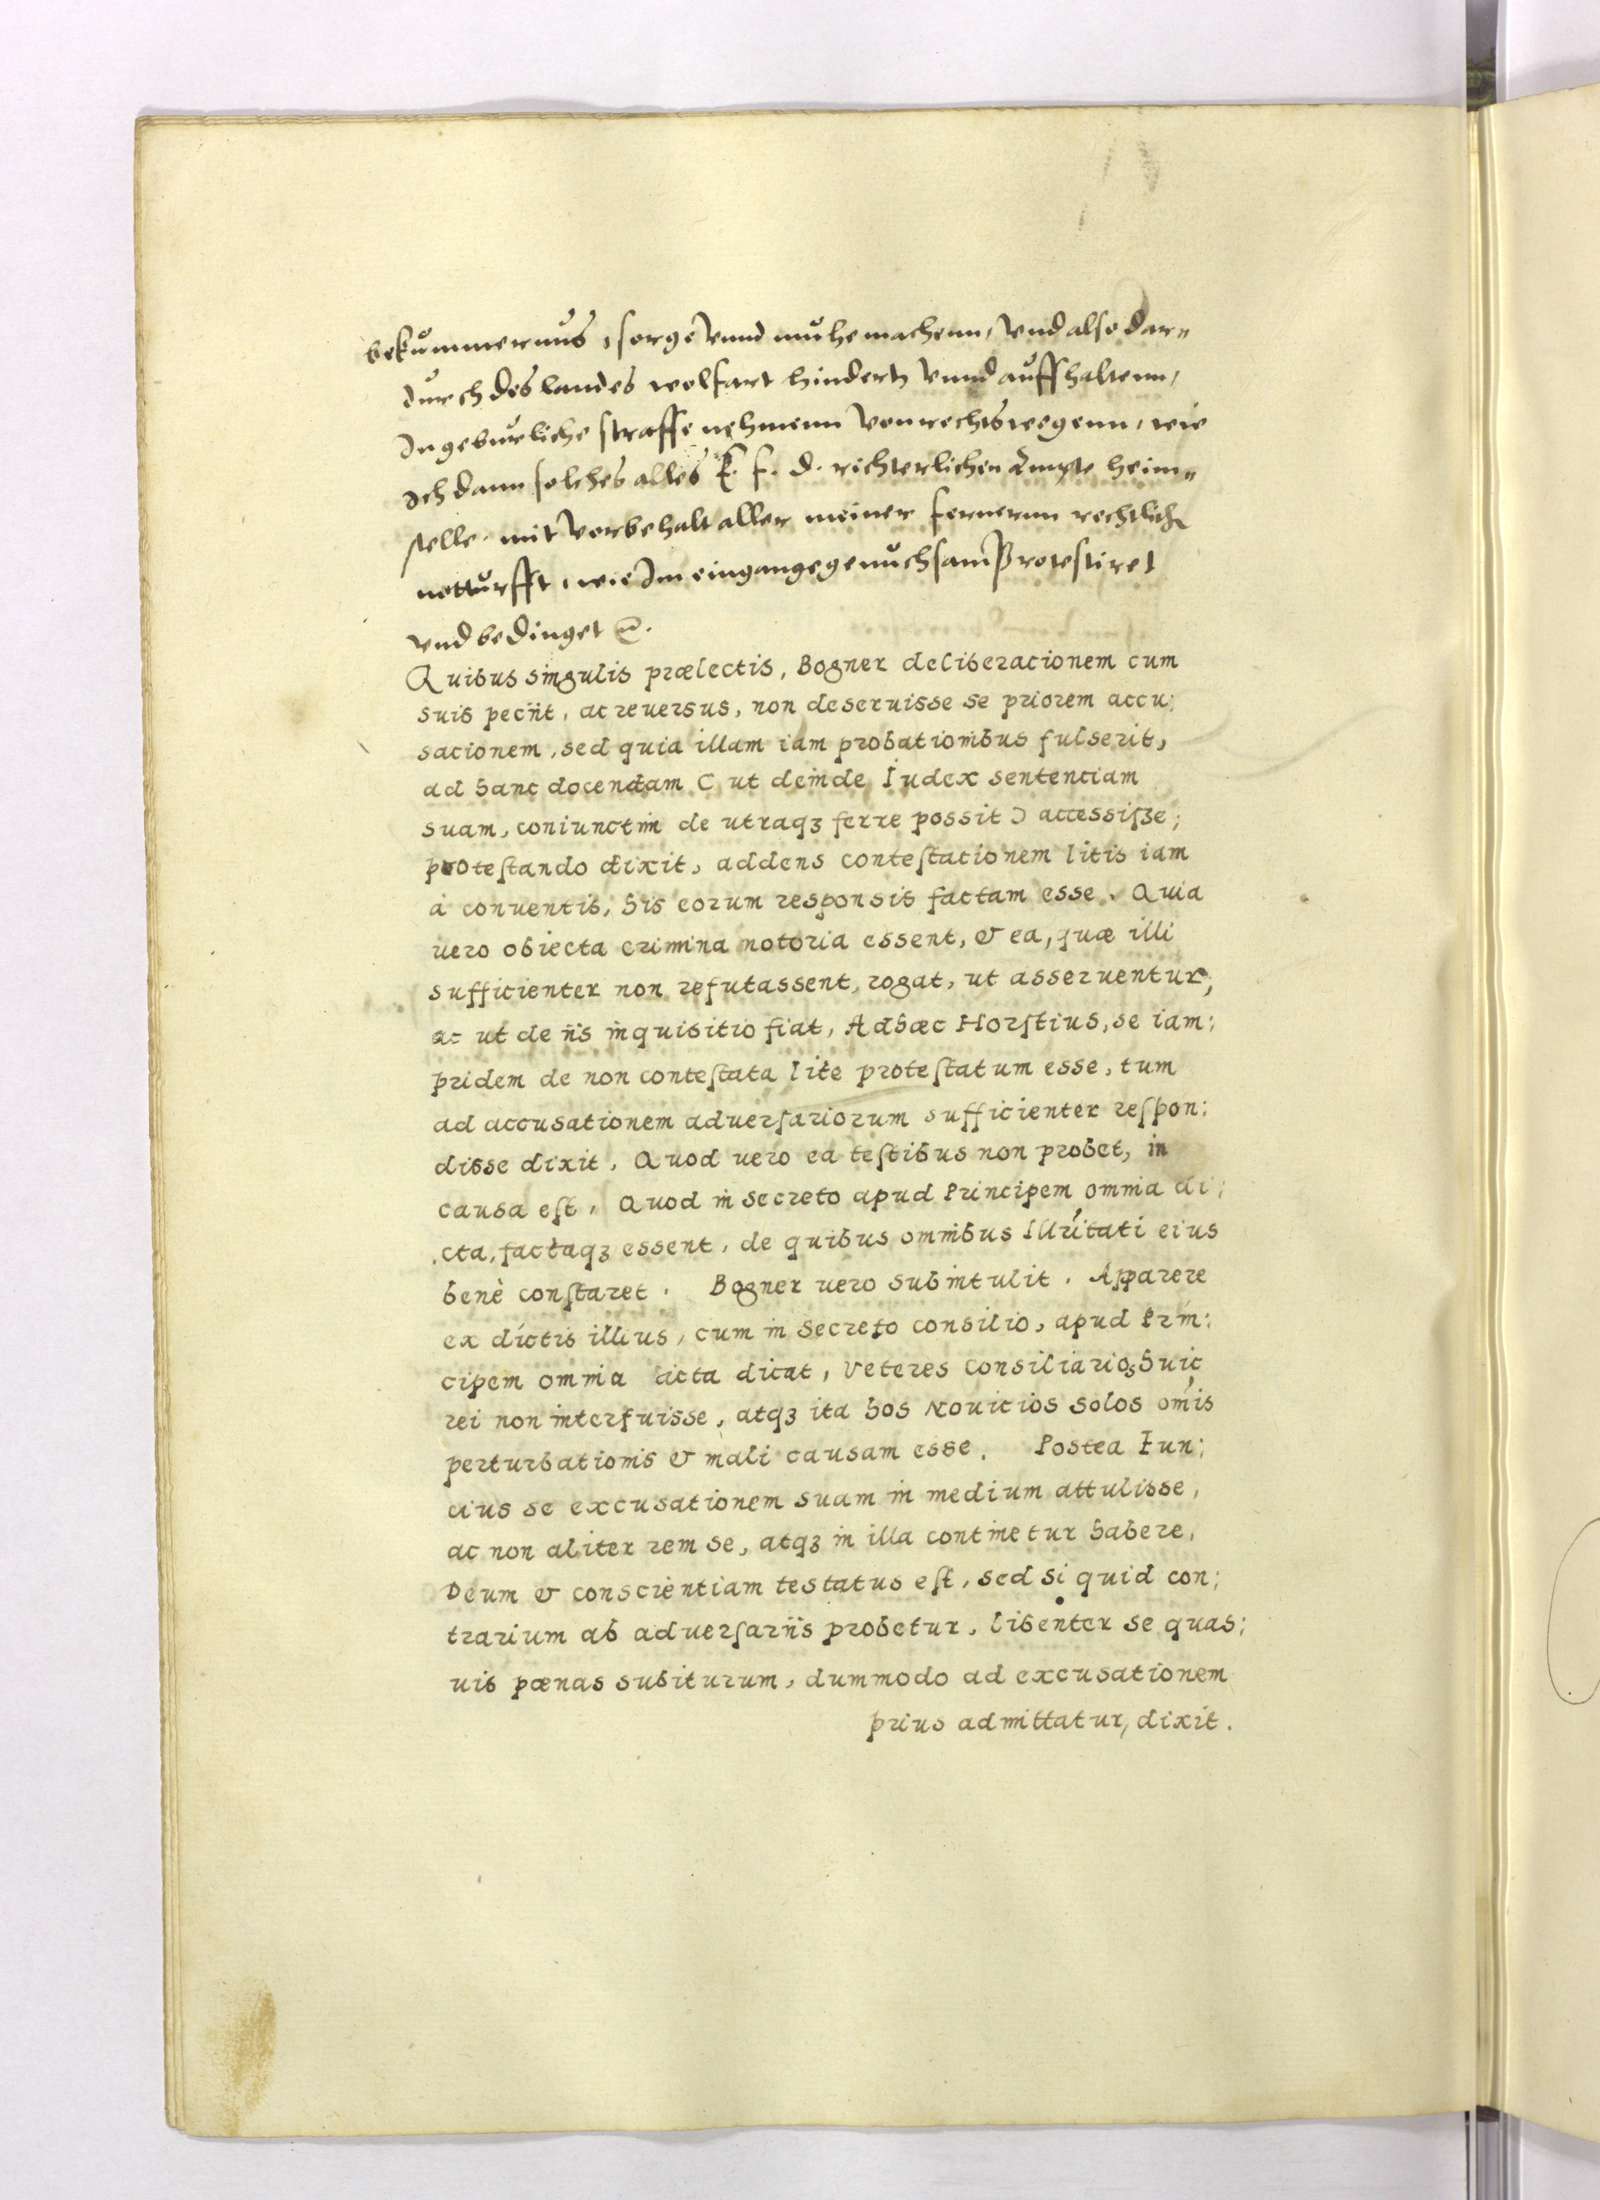 bekummernus, sorge vnnd muhe machenn, vnd also dar„
durch des landes wolfart hindertt vnnd auffhaltenn,
In geburliche straffe nehmenn von rechts wegenn, wie
Ich dann solches alles E. f. d. richterlichen Ampte heim„
stelle, mit vorbehalt aller meiner fernernn rechtlichen
notturfft, wie Im eingange genuchsam Protestiret
vnd bedinget ꝛc.
Quibus singulis prælectis, Bogner deliberacionem cum
suis pecijt, ac reuersus, non deseruisse se priorem accu:
sacionem, sed quia illam iam probationibus fulserit,
ad hanc docendam ( ut deinde Iudex sentenciam
suam, coniunctim de utraqꝫ ferre possit ) accessisse;
protestando dixit, addens contestacionem litis iam
à conuentis, his eorum responsis factam esse. Quia
uero obiecta crimina notoria essent, & ea, quæ illi
sufficienter non refutassent, rogat, ut asseruentur,
ac ut de ijs inquisitio fiat, Ad hæc Horstius, se iam:
pridem de non contestata lite protestatum esse, tum
ad accusationem aduersariorum sufficienter respon:
disse dixit. Quod uero ea testibus non probet, in
causa est, Quod in secreto apud Principem omnia di:
cta, factaqꝫ essent, de quibus omnibus Illũitati eius
benè constaret. Bogner uero subintulit. Apparere
ex dictis illius, cum in secreto consilio, apud Prin:
cipem omnia acta dicat, veteres consiliarios huic
rei non interfuisse, atqꝫ ita hos Nouicios solos om̃is
perturbationis & mali causam esse. Postea Iun:
cius se excusationem suam in medium attulisse,
ac non aliter rem se, atqꝫ in illa continetur habere,
Deum & conscientiam testatus est, sed si quid con:
trarium ab aduersarijs probetur, libenter se quas:
uis pœnas subiturum, dummodo ad excusationem
prius admittatur, dixit.